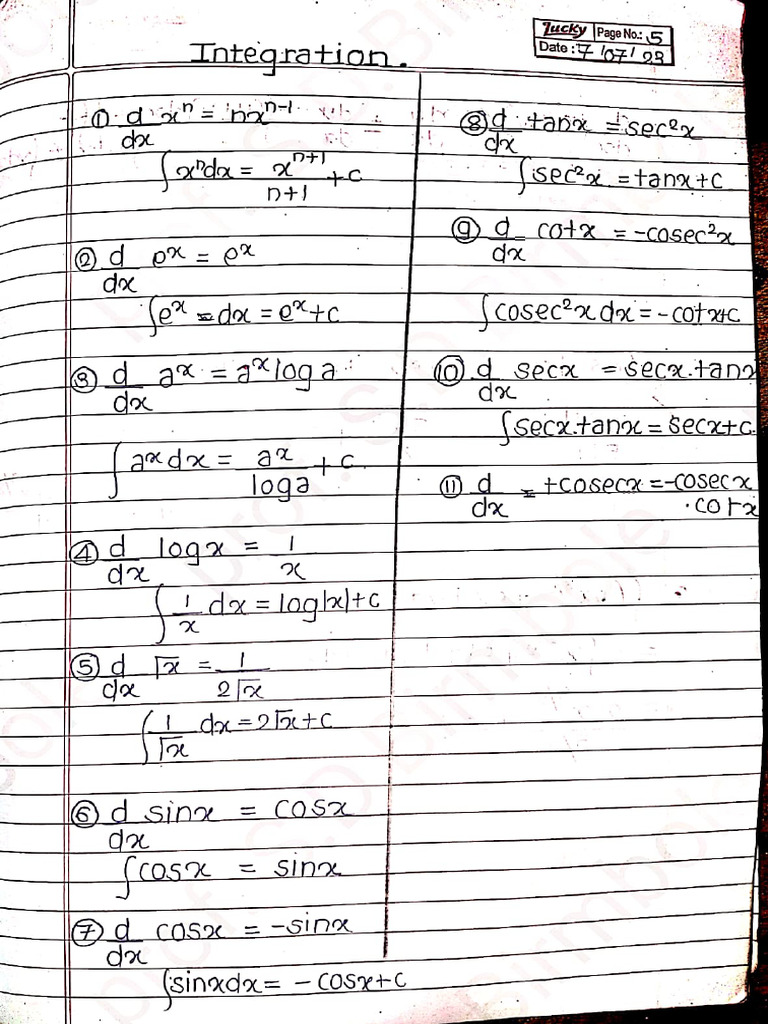 Lucky Page No.: 5
Date: 7/07/23
Integration.
① d/dx xⁿ = nxⁿ⁻¹
∫xⁿdx = xⁿ⁺¹/n+1 + c
② d/dx eˣ = eˣ
∫eˣ = dx = eˣ+c
③ d/dx aˣ = aˣ log a
∫aˣ dx = aˣ/log a + c
④ d/dx log x = 1/x
∫1/x dx = log|x|+c
⑤ d/dx √x = 1/2√x
∫1/√x dx = 2√x+c
⑥ d/dx sinx = cosx
∫cosx = sinx
⑦ d/dx cosx = -sinx
∫sinxdx = -cosx+c
⑧ d/dx tanx = sec²x
∫sec²x = tanx+c
⑨ d/dx cotx = -cosec²x
∫cosec²x dx = -cotx+c
⑩ d/dx secx = secx.tanx
∫secx.tanx = secx+c
⑪ d/dx = +cosecx = -cosecx
.cotx